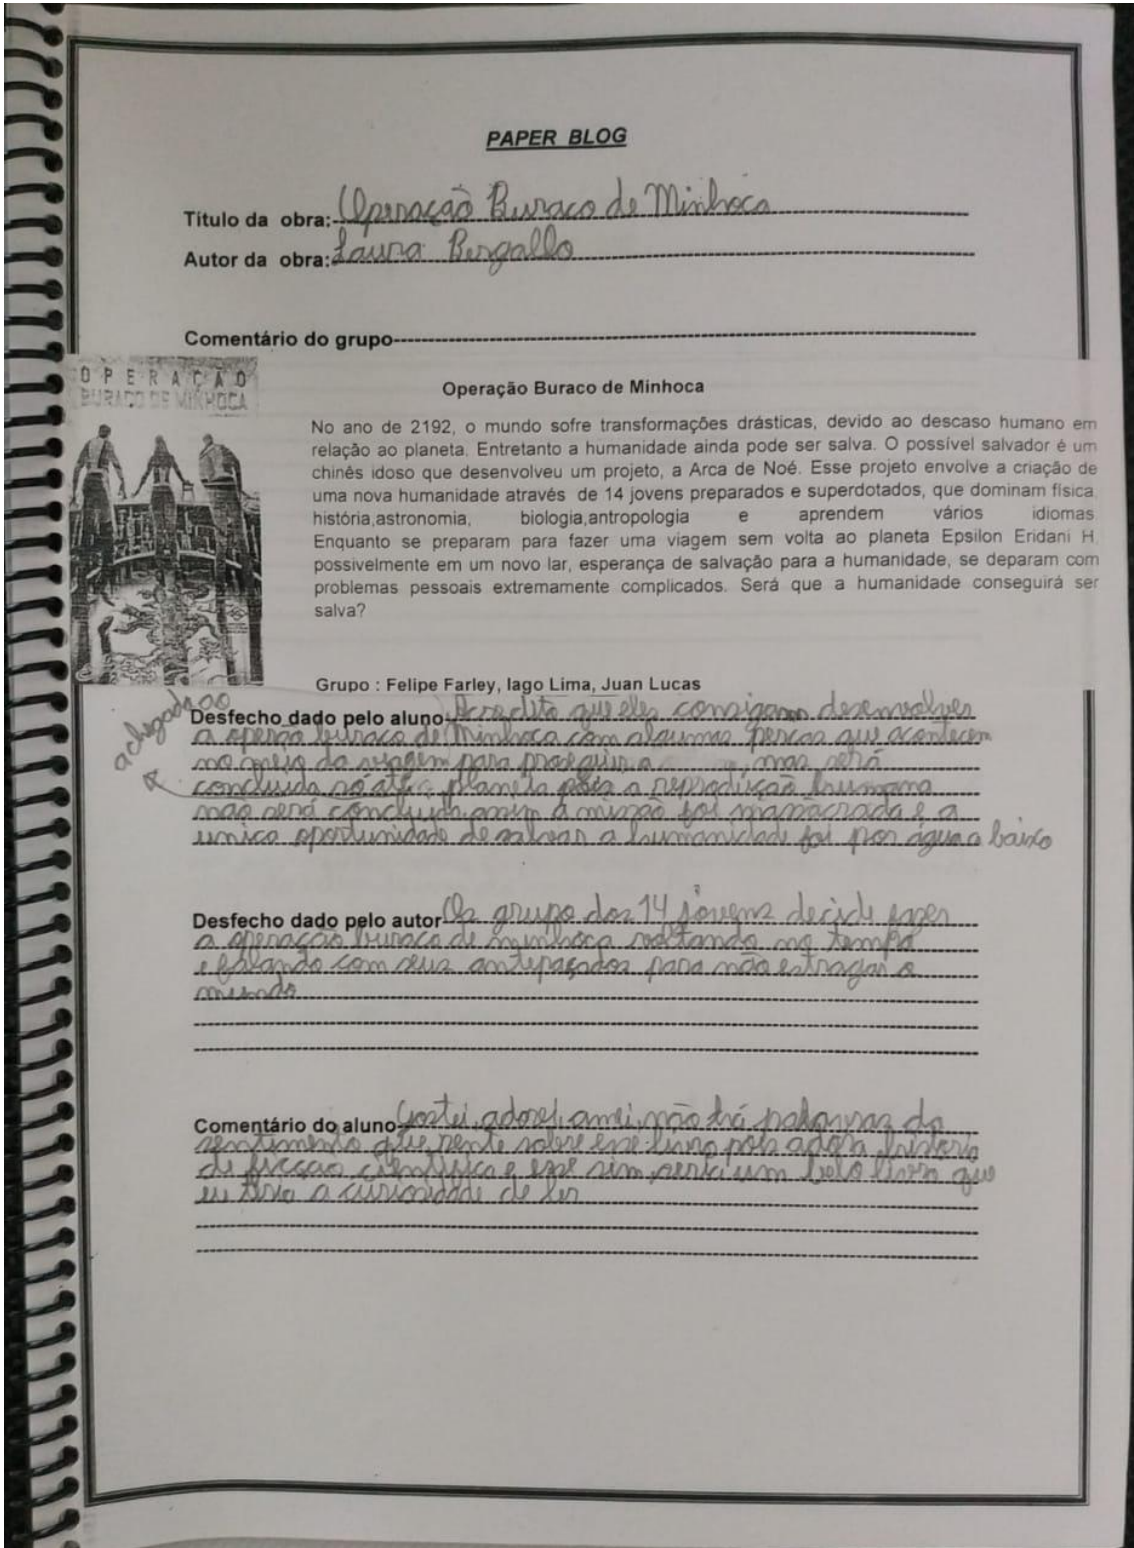 PAPER BLOG
Título da obra: Operação Buraco de Minhoca
Autor da obra: Laura Bergallo
Comentário do grupo
OPERAÇÃO
BURACO DE MINHOCA
Operação Buraco de Minhoca
No ano de 2192, o mundo sofre transformações drásticas, devido ao descaso humano em
relação ao planeta. Entretanto a humanidade ainda pode ser salva. O possível salvador é um
chinês idoso que desenvolveu um projeto, a Arca de Noé. Esse projeto envolve a criação de
uma nova humanidade através de 14 jovens preparados e superdotados, que dominam física,
história,astronomia, biologia,antropologia e aprendem vários idiomas.
Enquanto se preparam para fazer uma viagem sem volta ao planeta Epsilon Eridani H,
possivelmente em um novo lar, esperança de salvação para a humanidade, se deparam com
problemas pessoais extremamente complicados. Será que a humanidade conseguirá ser
salva?
Grupo : Felipe Farley, Iago Lima, Juan Lucas
a chegada ao
Desfecho dado pelo aluno Acredito que eles consigam desenvolver
a operção buraco de Minhoca com algumas percas que acontecem
no meio da viagem para proseguir a mas será
concluida só até planeta pois a reprodução humana
não será concluida assim a missão foi massacrada e a
unica oportunidade de salvar a humanidade foi por água a baixo
Desfecho dado pelo autor Os grupo dos 14 jovens decide fazer
a operação buraco de minhoca voltando no tempo
e falando com seus antepaçados para não estragar o
mundo
Comentário do aluno Gostei, adorei, amei, não há palavras do
sentimento que sente sobre esse livro pois adora historia
de ficção cientifica e esse sim seria um belo livro que
eu teria a curiosidade de ler